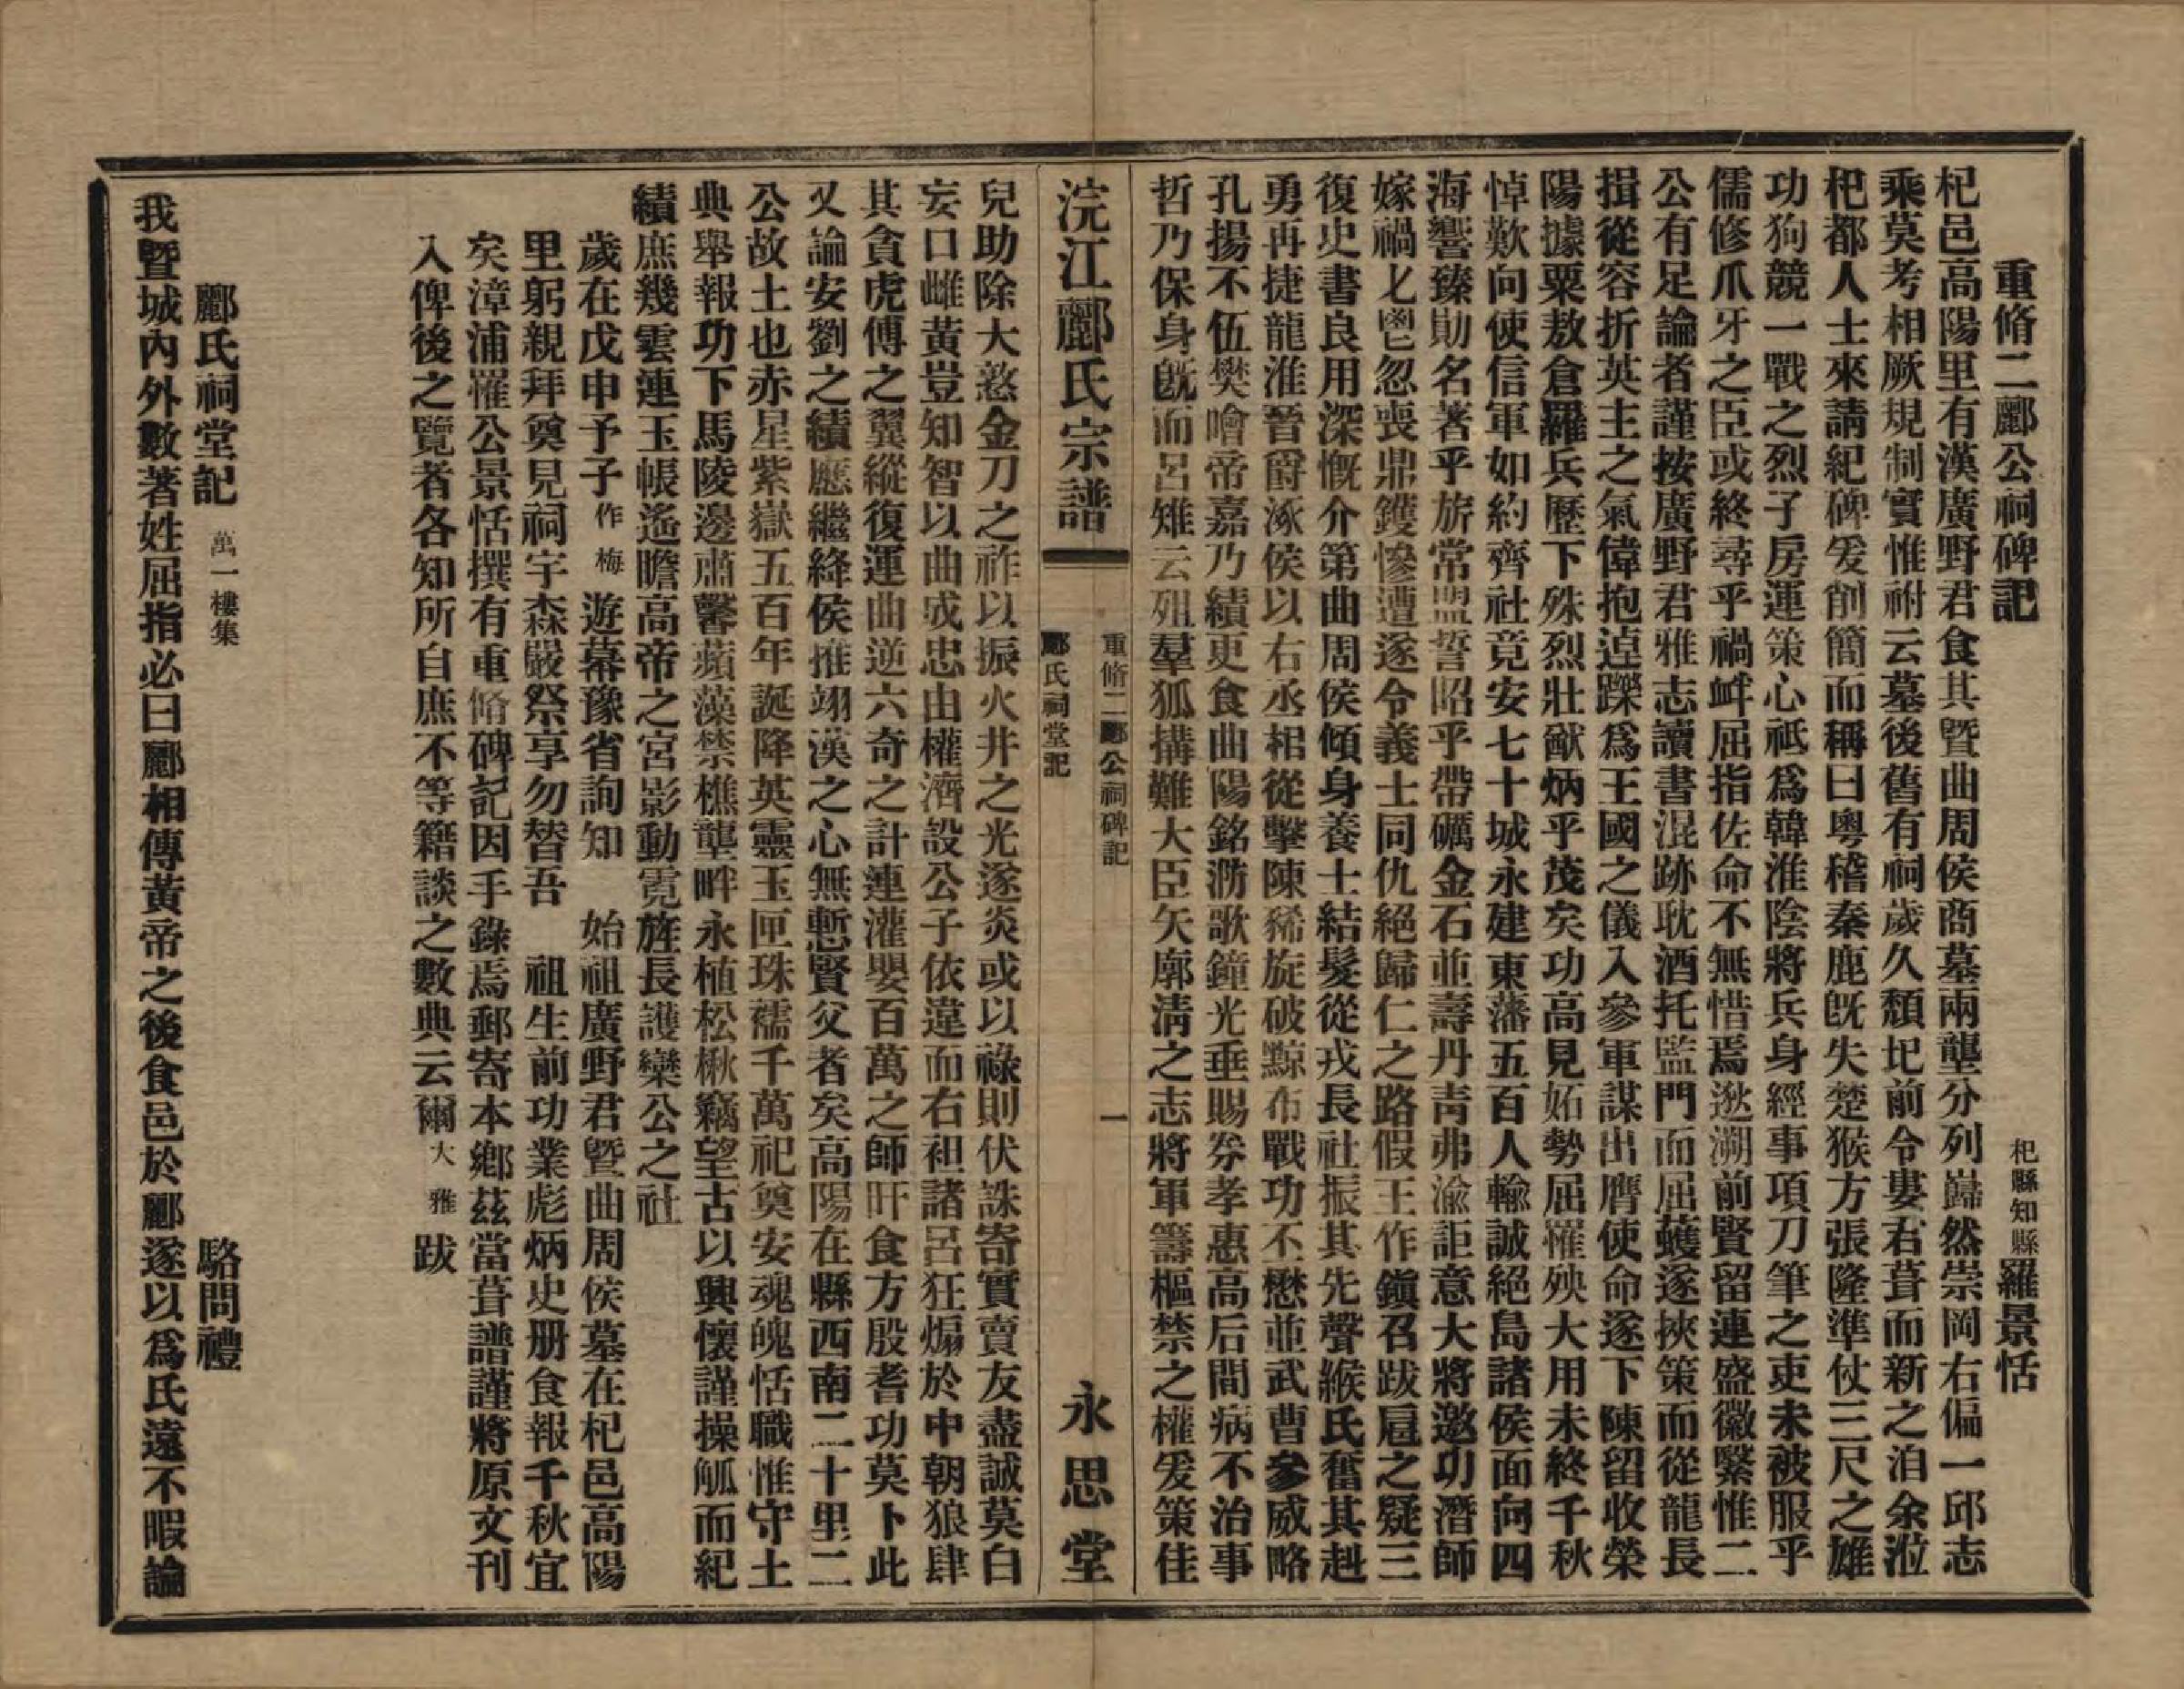 重脩二酈公祠碑記　杞縣知縣羅景恬
杞邑高陽里有漢廣野君食其暨曲周侯商墓兩壟分列巋然崇岡右偏一邱志
乘莫考相厥規制實惟祔云墓後舊有祠歲久頹圮前令婁君葺而新之洎余涖
杞都人士來請紀碑爰削簡而稱曰粵稽秦鹿旣失楚猴方張隆準仗三尺之雄
功狗競一戰之烈子房運策心祗爲韓淮陰將兵身經事項刀筆之吏未被服乎
儒修爪牙之臣或終尋乎禍衅屈指佐命不無惜焉逖溯前賢留連盛徽繄惟二
公有足論者謹按廣野君雅志讀書混跡耽酒托監門而屈蠖遂挾策而從龍長
揖從容折英主之氣偉抱逴躒爲王國之儀入參軍謀出膺使命遂下陳留收榮
陽據粟敖倉羅兵歷下殊烈壯猷炳乎茂矣功高見妬勢屈罹殃大用未終千秋
悼歎向使信軍如約齊社竟安七十城永建東藩五百人輸誠絕島諸侯面向四
海響臻勛名著乎旂常盟誓昭乎帶礪金石並壽丹靑弗渝詎意大將邀功潛師
嫁禍匕鬯忽喪鼎鑊慘遭遂令義士同仇絕歸仁之路假王作鎭召跋扈之疑三
復史書良用深慨介第曲周侯傾身養士結髮從戎長社振其先聲緱氏奮其赳
勇再捷龍淮晉爵涿侯以右丞相從擊陳豨旋破黥布戰功丕懋並武曹參威略
孔揚不伍樊噲帝嘉乃績更食曲陽銘泐歌鐘光垂賜券孝惠高后間病不治事
哲乃保身旣而呂雉云殂羣狐搆難大臣矢廓淸之志將軍籌樞禁之權爰策佳
浣江酈氏宗譜　重脩二酈公祠碑記　酈氏祠堂記　一　永思堂
兒助除大憝金刀之祚以振火井之光遂炎或以祿則伏誅寄實賣友盡誠莫白
妄口雌黃豈知智以曲成忠由權濟設公子依違而右袒諸呂狂煽於中朝狼肆
其貪虎傅之翼縱復運曲逆六奇之計連灌嬰百萬之師旰食方殷耆功莫卜此
又論安劉之績應繼絳侯推翊漢之心無慙賢父者矣高陽在縣西南二十里二
公故土也赤星紫嶽五百年誕降英靈玉匣珠襦千萬祀奠安魂魄恬職惟守土
典舉報功下馬陵邊肅馨蘋藻禁樵壟畔永植松楸竊望古以興懷謹操觚而紀
績庶幾雲連玉帳遙瞻高帝之宮影動霓旌長護欒公之社
歲在戊申予子作梅遊幕豫省詢知　始祖廣野君暨曲周侯墓在杞邑高陽
里躬親拜奠見祠宇森嚴祭享勿替吾　祖生前功業彪炳史册食報千秋宜
矣漳浦羅公景恬撰有重脩碑記因手錄焉郵寄本鄉茲當葺譜謹將原文刊
入俾後之覽者各知所自庶不等籍談之數典云爾大雅跋
酈氏祠堂記萬一樓集　駱問禮
我暨城內外數著姓屈指必曰酈相傳黃帝之後食邑於酈遂以爲氏遠不暇論